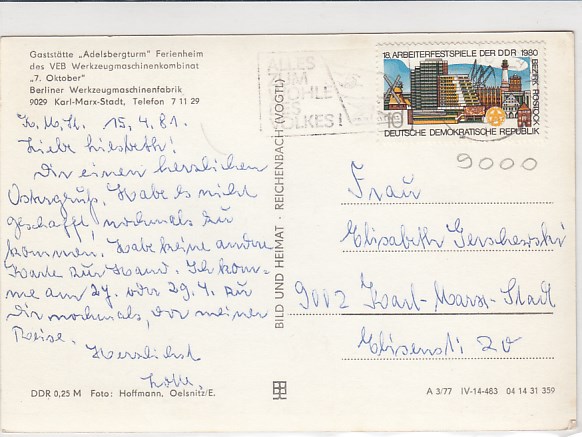 Gaststätte „Adelsbergturm" Ferienheim
des VEB Werkzeugmaschinenkombinat
„7. Oktober"
Berliner Werkzeugmaschinenfabrik
9029 Karl-Marx-Stadt, Telefon 7 11 29
K. M. St. 15.4.81.
Liebe Liesbeth!
Dir einen herzlichen
Ostergruß. Habe es nicht
geschafft nochmals zu
kommen. Habe keine andre
Karte zur Hand. Ich kom-
me am 27. oder 29.4. zu
Dir nochmals, vor meiner
Reise.
Herzlichst
DDR 0,25 M Foto: Hoffmann, Oelsnitz/E.
BILD UND HEIMAT · REICHENBACH (VOGTL)
ALLES
ZUM
WOHLE
DES
VOLKES!
18. ARBEITERFESTSPIELE DER DDR 1980
BEZIRK ROSTOCK
10
DEUTSCHE DEMOKRATISCHE REPUBLIK
9000
Frau
Elisabeth Gerschewski
9002 Karl-Marx-Stadt
Elisenstr 20
A 3/77 IV-14-483 04 14 31 359